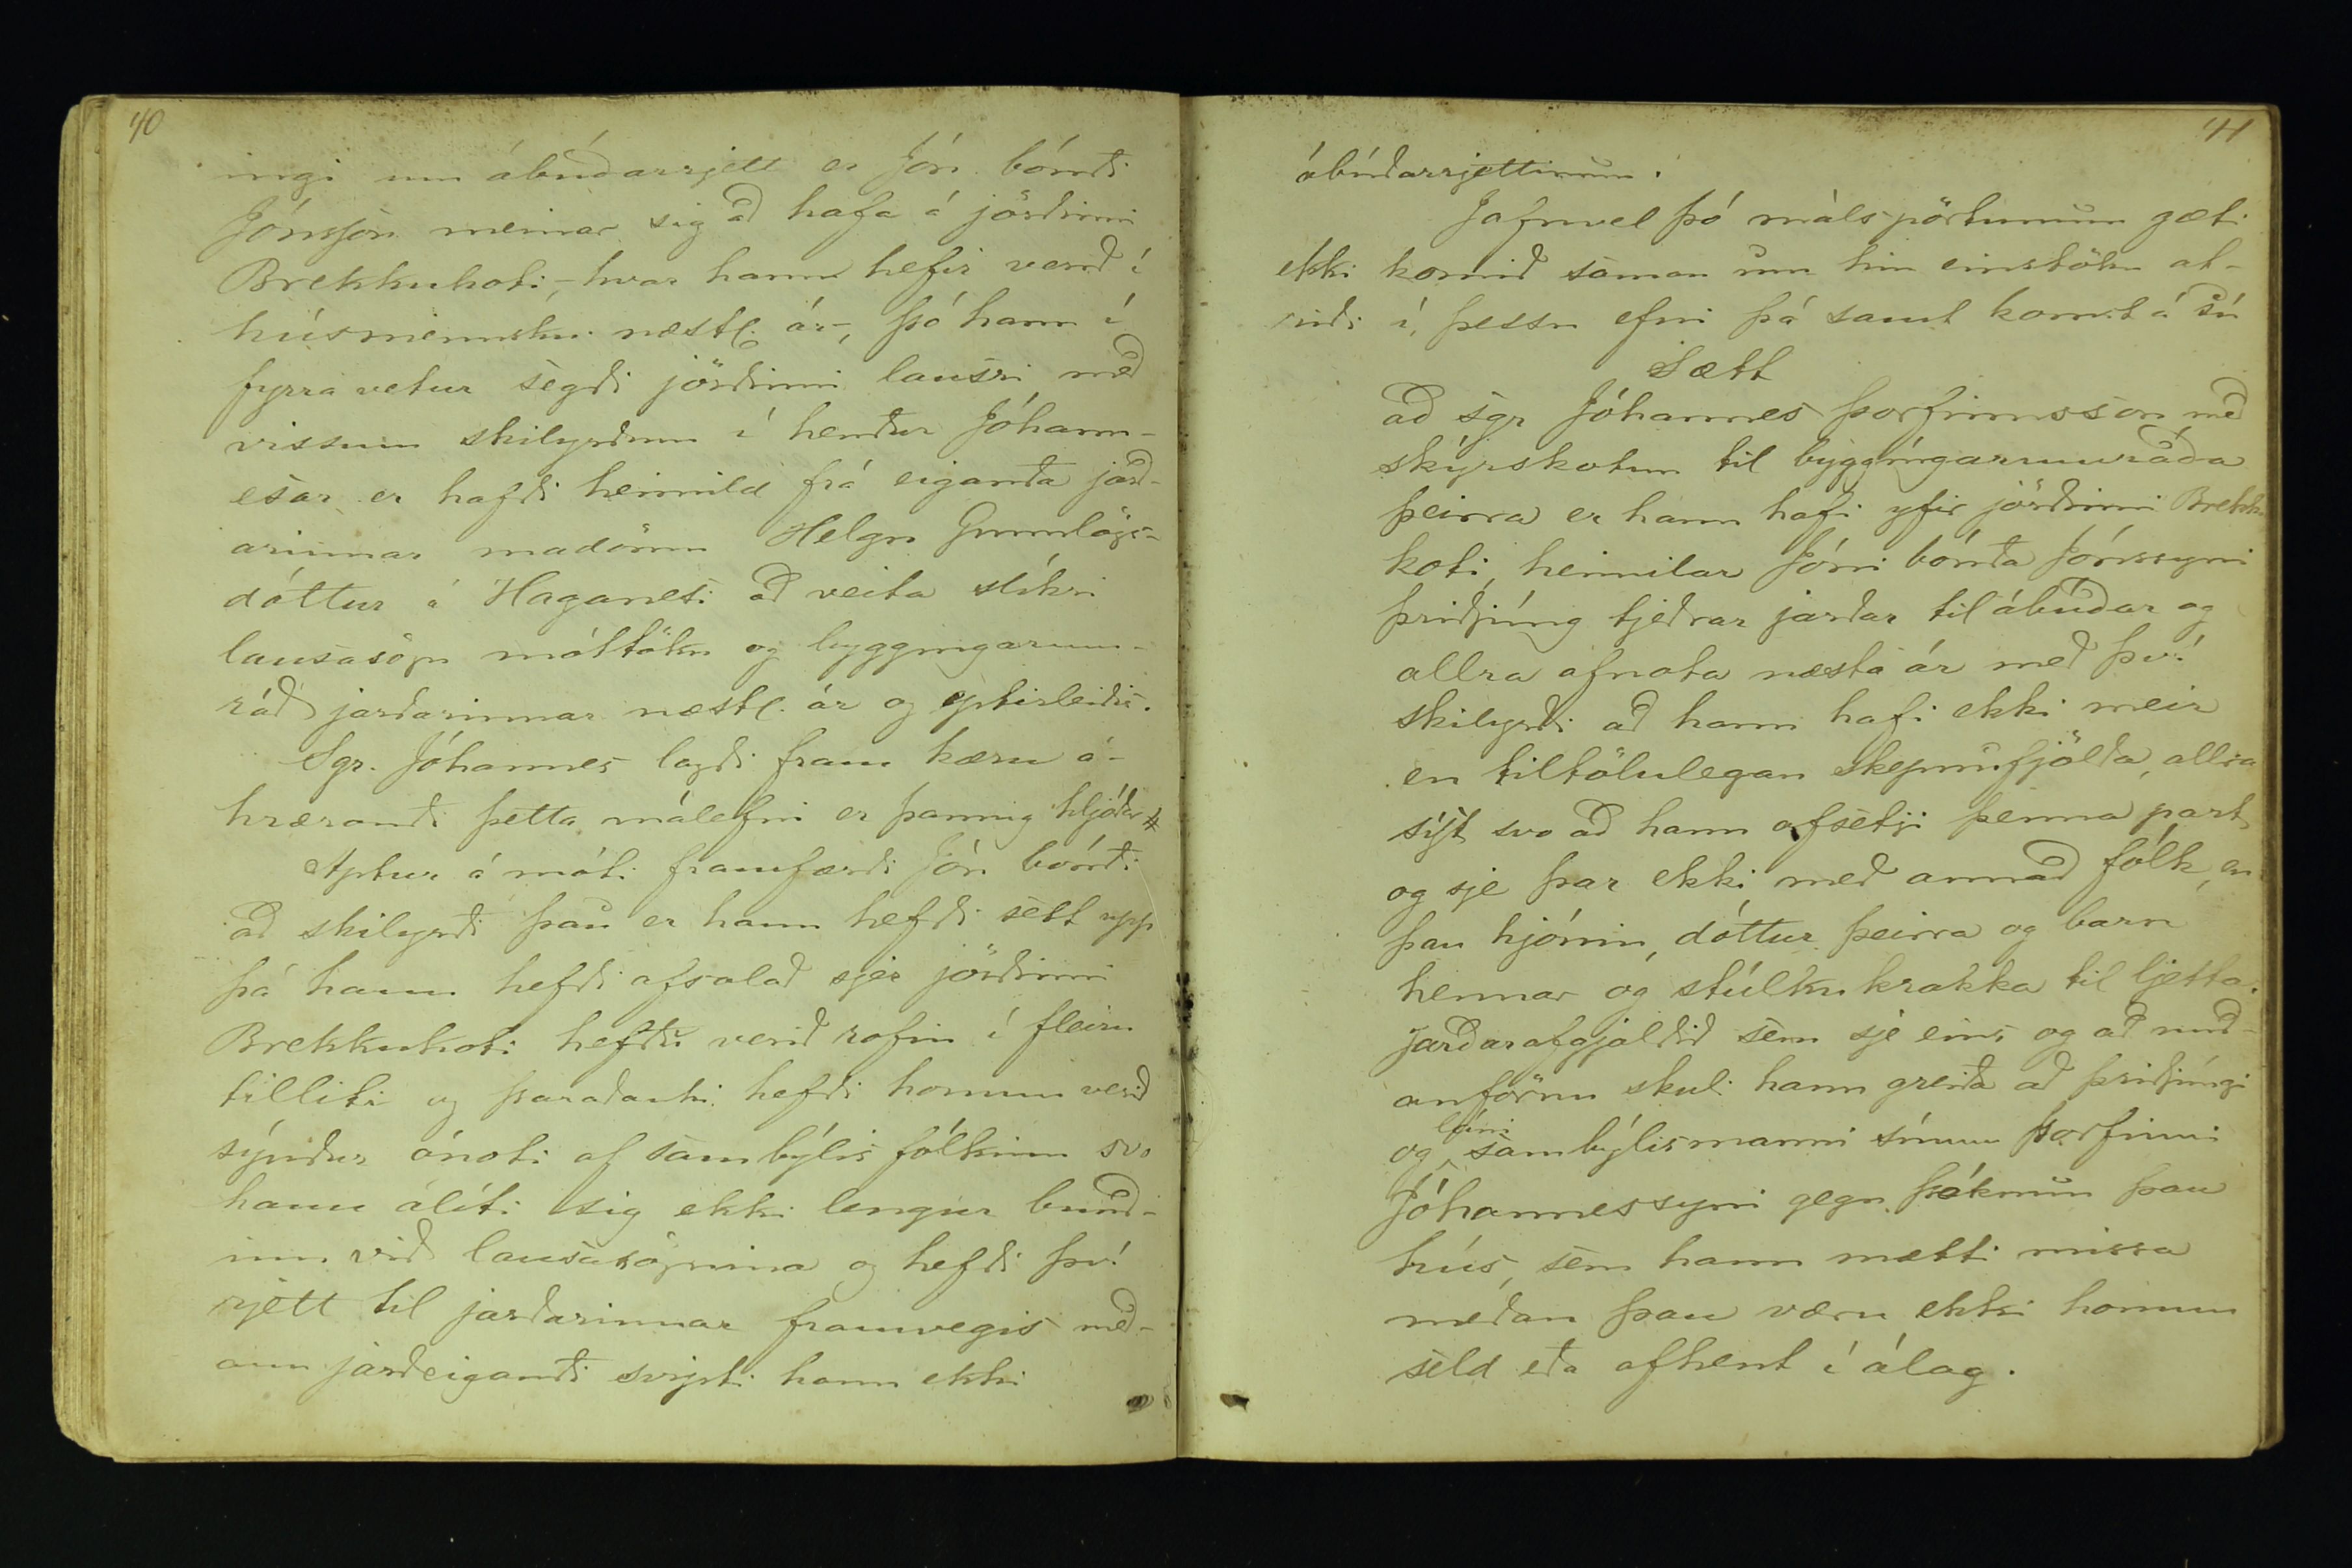 40
ingi um ábúðarrjett er Jón bóndi
Jónsson meinar sig að hafa á jörðinni
Brekkukoti, - hvar hann hefir verið í
húsmennsku næstl. ár -, þó hann í
fyrra vetur segði jörðinni lausri með
vissum skilyrðum í hendur Jóhann-
esar er hafði heimild frá eiganda jarð-
arinnar madömu Helgu Gunnlögs-
dóttur á Haganesi að veita slíkri
lausasögn móttöku og byggingarum-
ráð jarðarinnar næstl. ár og eptirleiðis.
Sgr. Jóhannes lagði fram kæru á-
hrærandi þetta málefni er þannig hljóðar #
Aptur á móti framfærði Jón bóndi
að skilyrði þau er hann hefði sett upp
þá hann hefði afsalað sjer jörðinni
Brekkukoti hefðu verið rofin í fleiru
tilliti og þaraðauki hefði honum verið
sýndur ónoti af sambýlis fólkinu svo
hann áliti sig ekki lengur bund-
inn við lausasögnina og hefði því
rjett til jarðarinnar framvegis með-
ann jarðeigandi svipti hann ekki
41
ábúðarrjettinum.
Jafnvel þó málspörtunum gæti
ekki komið saman um hin einstöku at-
riði í þessu efni þá samt komst á sú
Sætt
að sgr Jóhannes Þorfinnsson með
skýrskotun til byggíngarumráða
þeirra er hann hafi yfir jörðinni Brekku
koti, heimilar Jóni bónda Jónssyni
þriðjúng tjeðrar jarðar til ábúðar og
allra afnota næsta ár með því
skilyrði að hann hafi ekki meir
en tiltölulegan skepnufjölda, allra
síst svo að hann ofsetji þenna part
og sje þar ekki með annað fólk, en
þau hjónin, dóttur þeirra og barn
hennar og stúlku krakka til ljetta.
Jarðarafgjaldið sem sje eins og að und-
anförnu skuli hann greiða að þriðjúngi
og láni sambýlismanni sínum Þorfinni
Jóhannessyni gegn þóknun þau
hús, sem hann mætti missa
meðan þau væru ekki honum
seld eða afhent í álag.